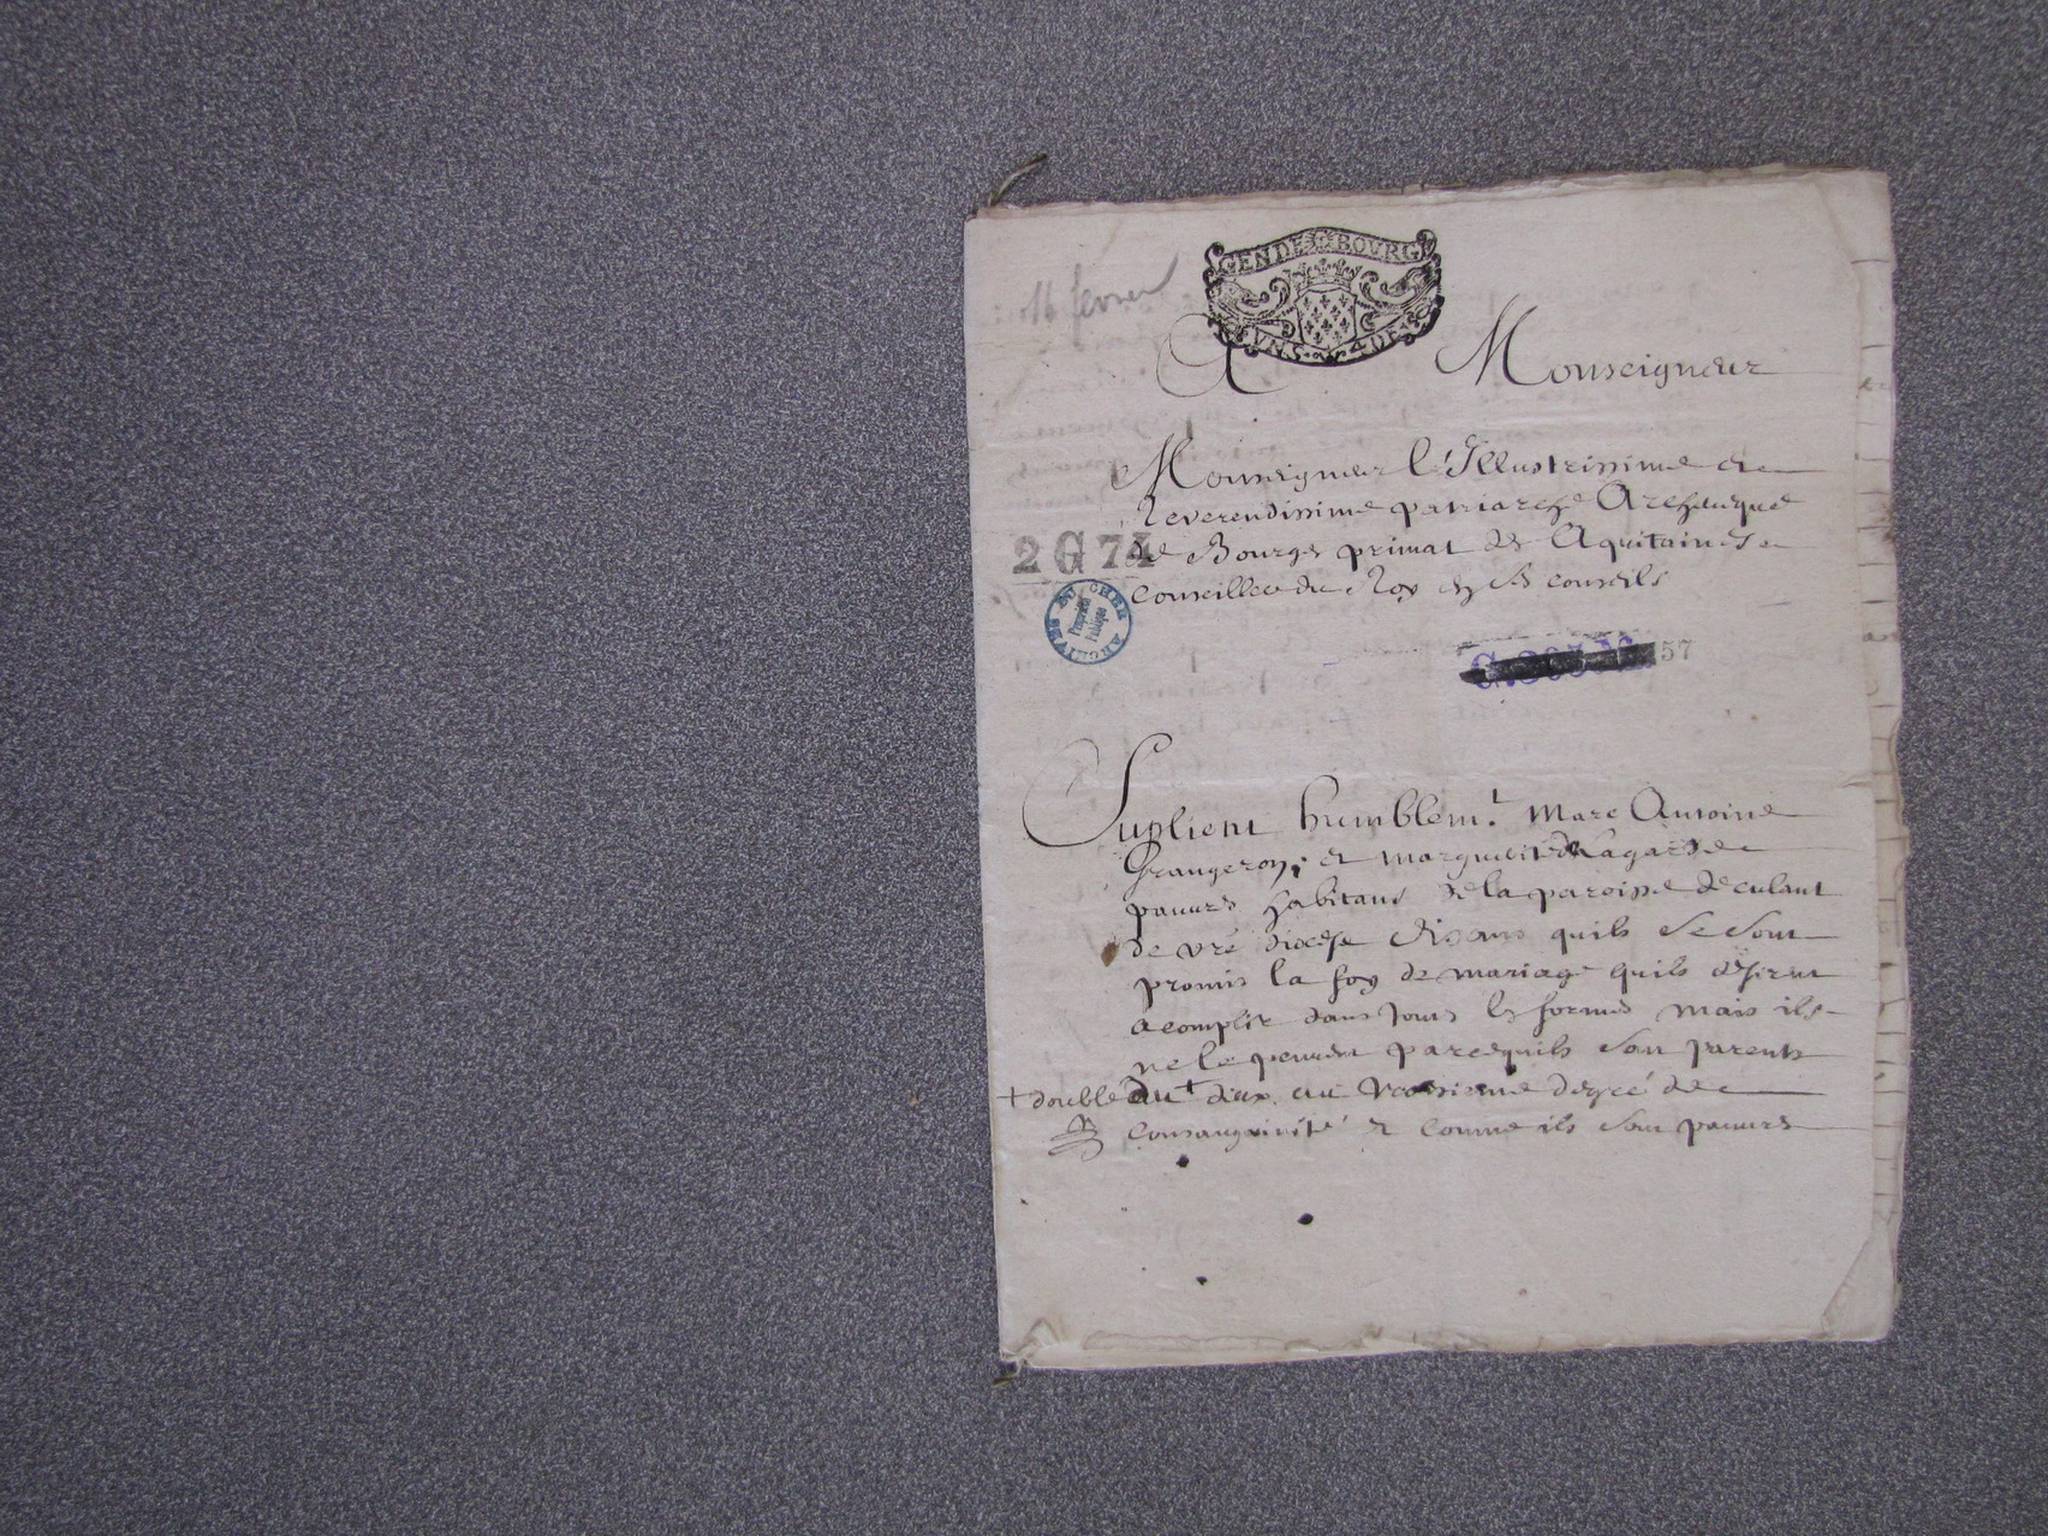 GEN DE BOVRG
VNS 4 DE
16 fevrier
A Monseigneur
Monseigneur l'Illustrissime et
Reverendissime patriarche Archeuesque
2 G 74
de Bourges primat des Aquitaines
Conseiller du Roy en ses conseils
ARCHIVES DU CHER
Propriété
Publique
57
Suplient humblemt. Marc Antoine
Grangeron, et marguerite agarde
pauures habitans de la paroisse de culant
de vre diocese disans quils se sont
promis la foy de mariage quils desirent
acomplir dans touts les formes mais ils
ne le peuuent parcequils sont parents
+ double du + deux au troisieme degré de
consanguinité et comme ils sont pauures